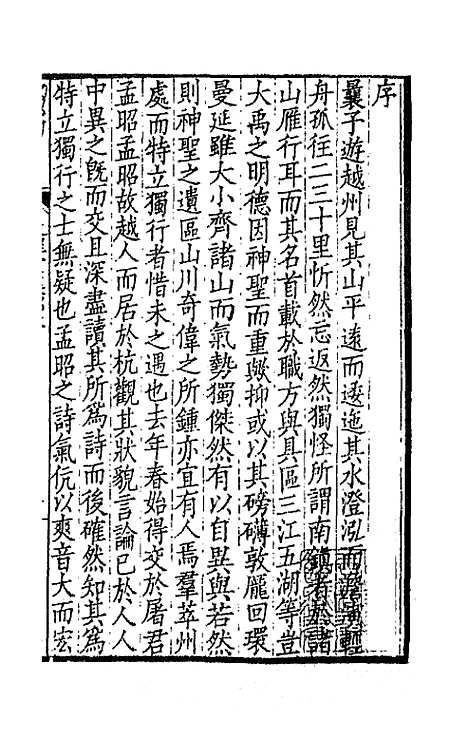 序
曩子遊越州見其山平遠而逶迤其水澄泓而澹實輕
舟孤往二三十里忻然忘返然獨怪所謂南鎮者於諸
山雁行耳而其名首載於職方與具區三江五湖等豈
大禹之明德因神聖而重歟抑或以其磅礴敦龐回環
曼延雖大小齊諸山而氣勢獨傑然有以自異與若然
則神聖之遺區山川奇偉之所鍾亦宜有人焉羣萃州
處而特立獨行者惜未之遇也去年春始得交於屠君
孟昭孟昭故越人而居於杭觀其狀貌言論已於人人
中異之既而交且深盡讀其所爲詩而後確然知其爲
特立獨行之士無疑也孟昭之詩氣伉以爽音大而宏